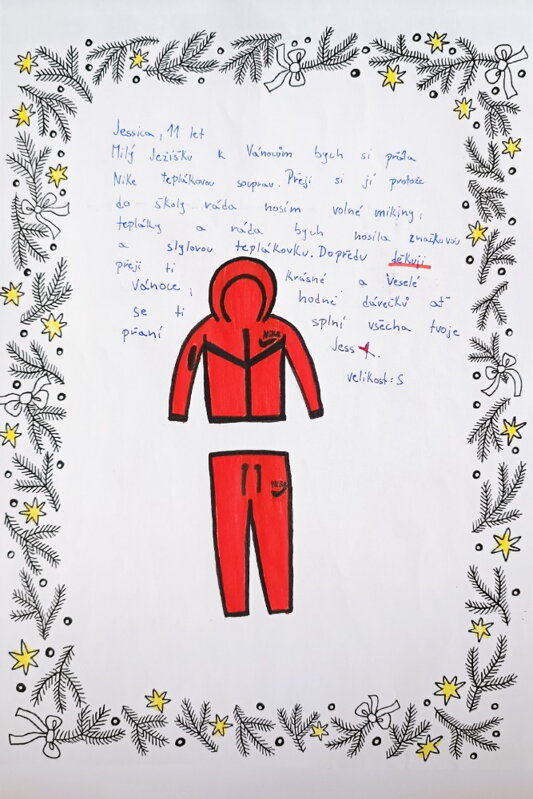 Jessica, 11 let
Milý Ježíšku k Vánocům bych si přála
Nike teplákovou souprav. Přeji si jí protože
do školy ráda nosím volné mikiny,
tepláky a ráda bych nosila značkovou
a stylovou teplákovku. Dopředu děkuji
přeji ti krásné a veselé
vánoce, hodně dárečků ať
se ti splní všecha tvoje
přaní
Jess
velikost: S
NIKE
NIKE